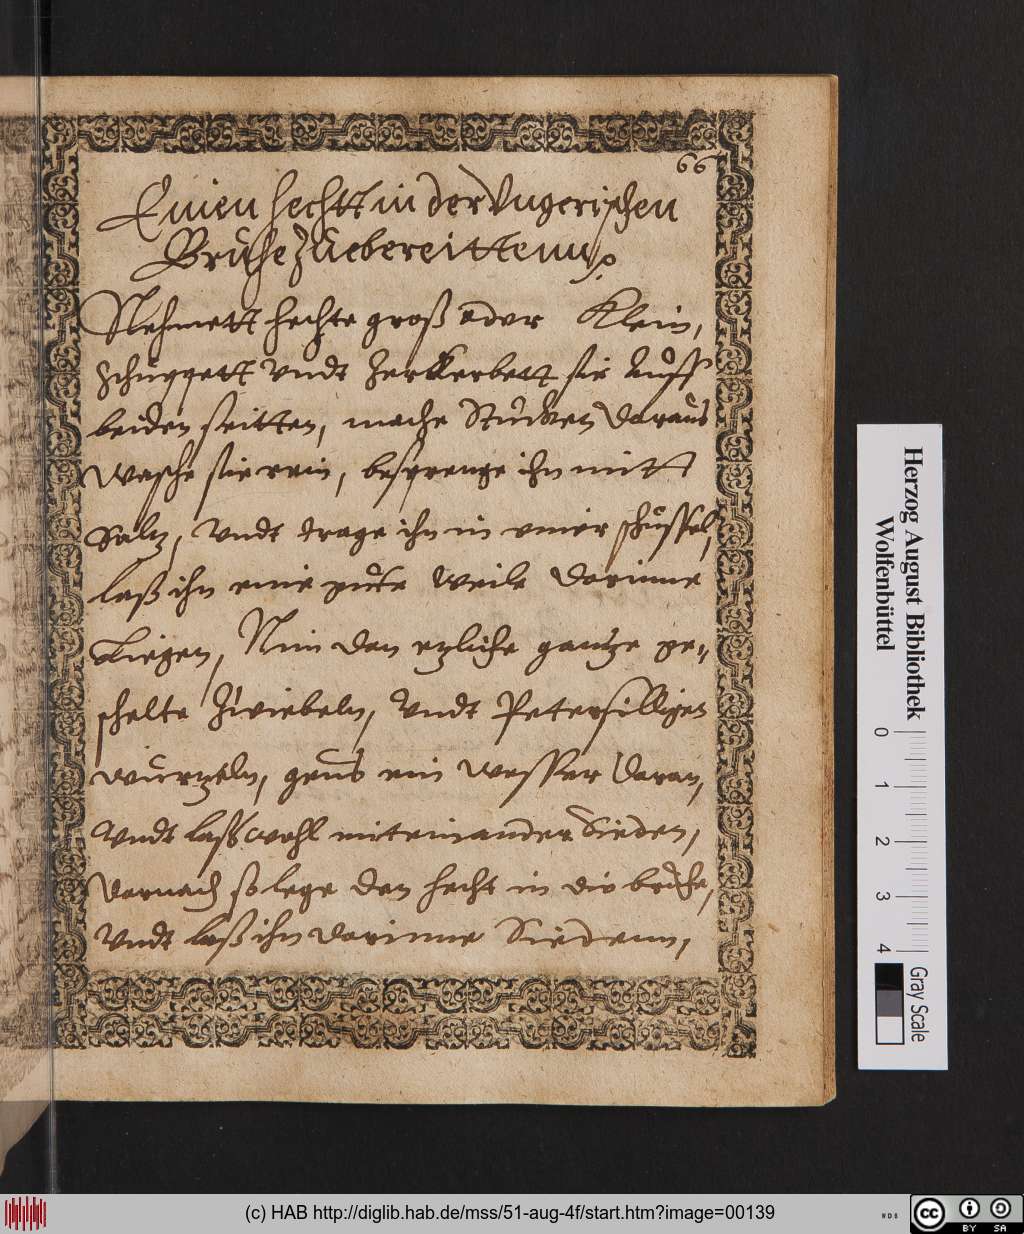 66
Einen hechtt in der Vngerischen
Brühe Zúebereittenn
Nehmett hechte groß oder Klein,
schúppett vndt Zerkerbett sie aúff
beiden seitten, mache Stücken daraús
wasche sie rein, besprenge ihn mitt
Saltz, vndt trage ihn in einer schüssel,
laß ihn eine gúte weile darinne
Liegen, Nim dan etzliche gantze ge„
schelte Zwiebeln, vndt Petersilligen
wúrtzeln, geús ein wasser daran,
vndt laß wohl miteinander Sieden,
darnach so lege den hecht in die brühe,
vndt laß ihn darinne Siedenn,
Herzog August Bibliothek
Wolfenbüttel
0 1 2 3 4
Gray Scale
(c) HAB http://diglib.hab.de/mss/51-aug-4f/start.htm?image=00139
WDB
cc BY SA